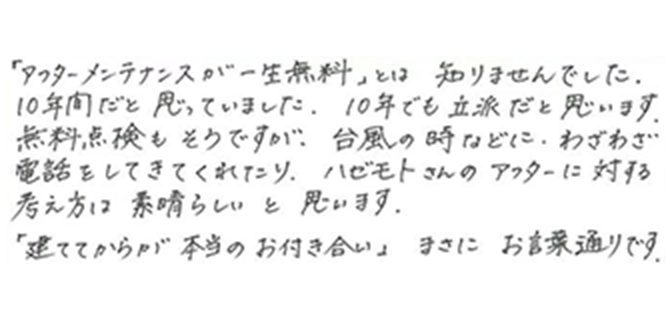 「アフターメンテナンスが一生無料」とは 知りませんでした.
10年間だと思っていました. 10年でも立派だと思います.
無料点検もそうですが. 台風の時などに. わざわざ
電話をしてきてくれたり. ハゼモトさんのアフターに対する
考え方は 素晴らしいと思います.
「建ててからが本当のお付き合い」 まさに お言葉通りです.